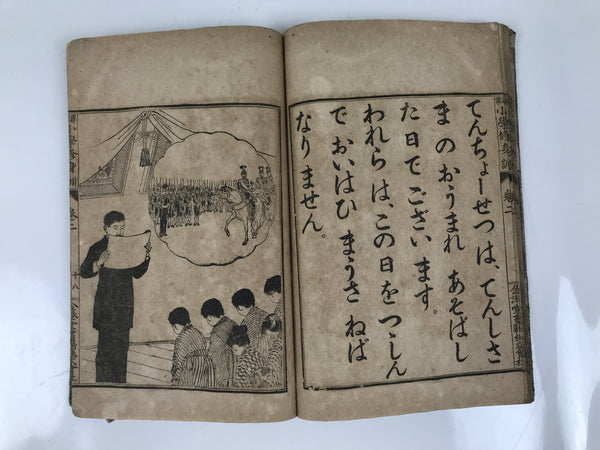 てんちょーせつは、てんしさ
まのおうまれ あそばし
た日でござい ます。
われらは、この日をつゝしん
でおいはひ まうさねば
なりません。
小學修身訓
卷二
小學修身訓
卷二
十八